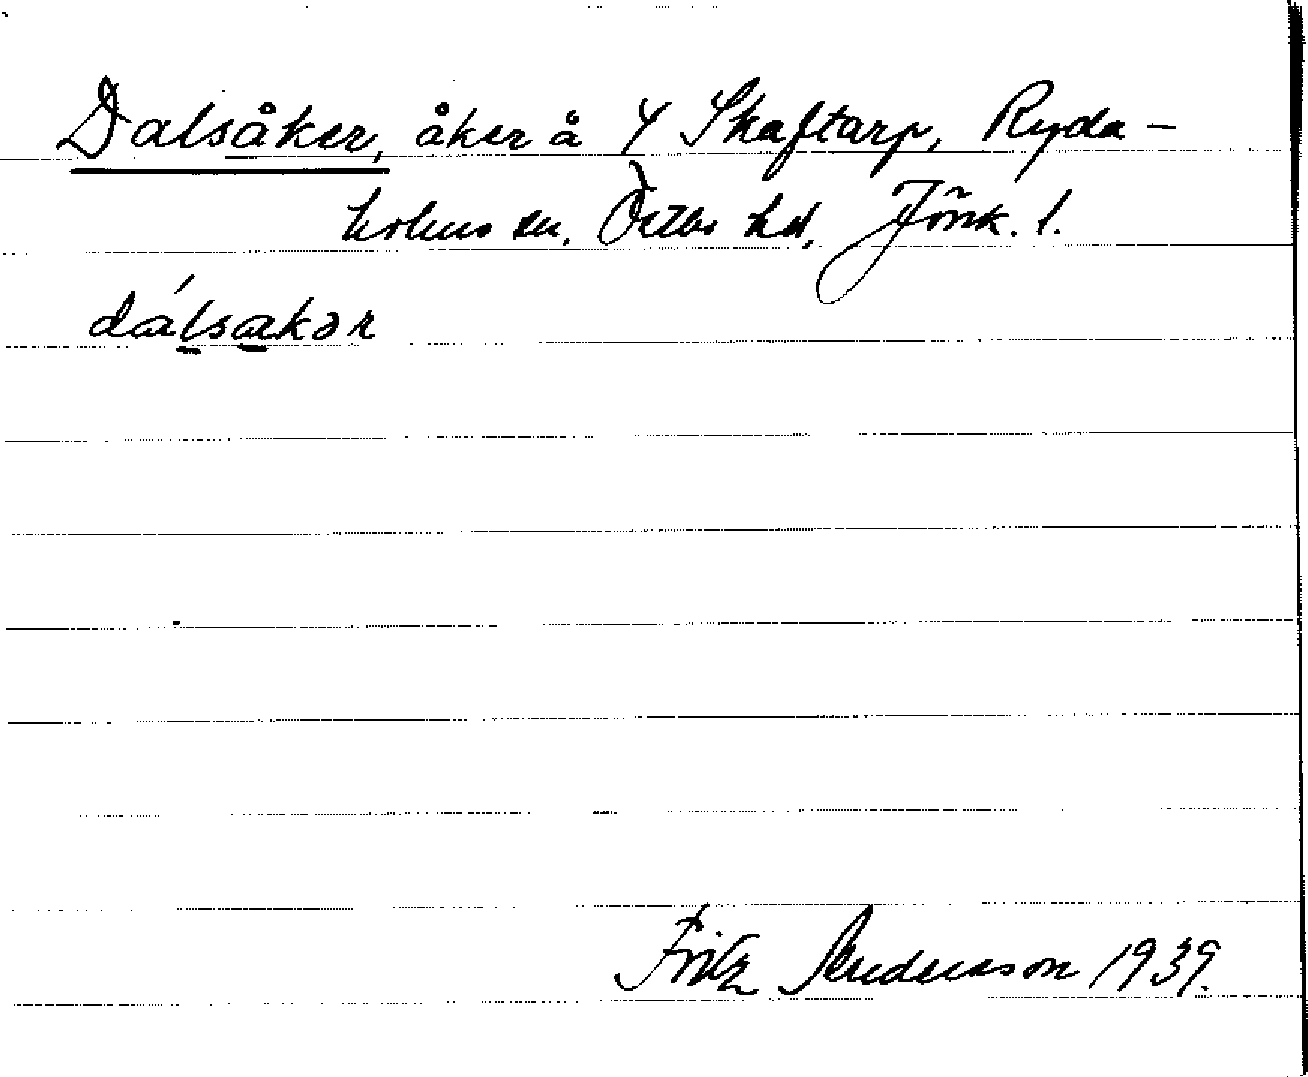 Dalsåker, åker å Y Skaftarp, Ryda-
holms sn, Östbo hd, Jönk. l.
dálsakər
Fritz Andersson 1939.